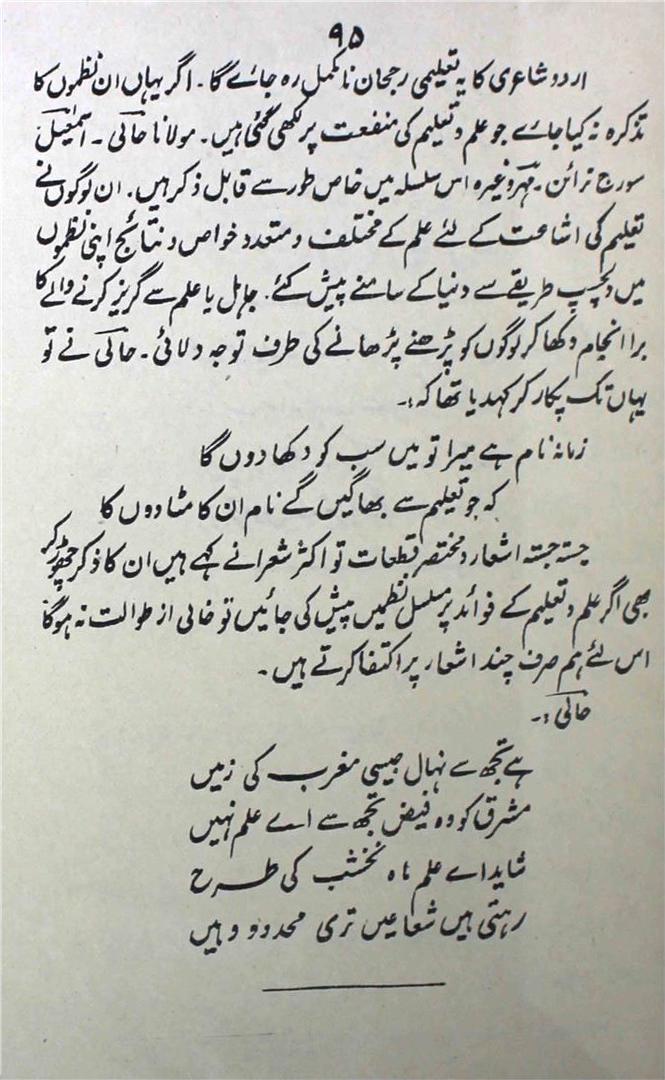 ۹۵
اردو شاعری کا یہ تعلیمی رجحان نامکمل رہ جائے گا۔ اگر یہاں ان نظموں کا
تذکرہ نہ کیا جائے جو علم و تعلیم کی منفعت پر لکھی گئی ہیں۔ مولانا حالی۔ اسمٰعیل
سورج نرائن۔ مہر وغیرہ اس سلسلہ میں خاص طور سے قابل ذکر ہیں۔ ان لوگوں نے
تعلیم کی اشاعت کے لئے علم کے مختلف و متعدد خواص و نتائج اپنی نظموں
میں دلچسپ طریقے سے دنیا کے سامنے پیش کئے۔ جاہل یا علم سے گریز کرنے والے کا
برا انجام دکھا کر لوگوں کو پڑھنے پڑھانے کی طرف توجہ دلائی۔ حالی نے تو
یہاں تک پکار کر کہدیا تھا کہ:۔
زمانہ نام ہے میرا تو میں سب کو دکھا دوں گا
کہ جو تعلیم سے بھاگیں گے نام ان کا مٹا دوں گا
جستہ جستہ اشعار و مختصر قطعات تو اکثر شعرا نے کہے ہیں ان کا ذکر چھوڑ کر
بھی اگر علم و تعلیم کے فوائد پر مسلسل نظمیں پیش کی جائیں تو خالی از طوالت نہ ہوگا
اس لئے ہم صرف چند اشعار پر اکتفا کرتے ہیں۔
حالی:۔
ہے تجھ سے نہال جیسی مغرب کی زمیں
مشرق کو وہ فیض تجھ سے اے علم نہیں
شاید اے علم ماہ نخشب کی طرح
رہتی ہیں شعاعیں تری محدود وہیں